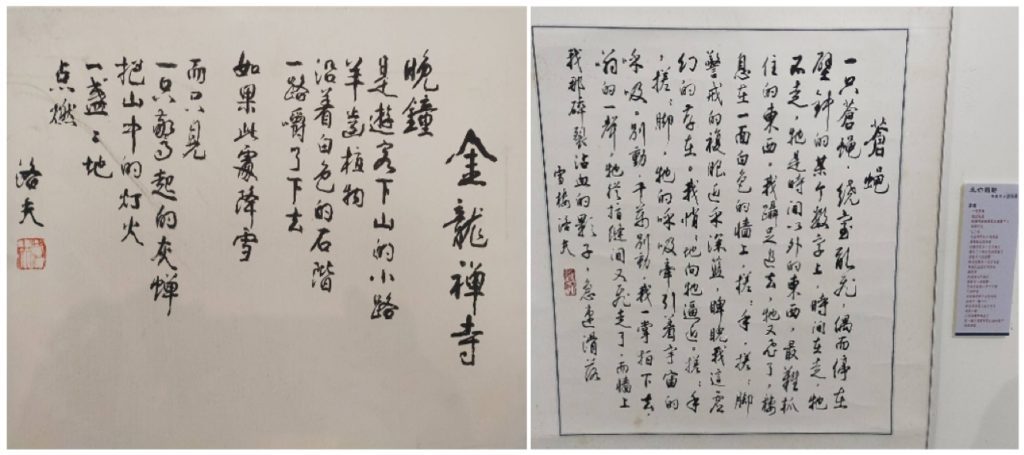 金龍禅寺
晚鐘
是遊客下山的小路
羊齒植物
沿着白色的石階
一路嚼了下去
如果此處降雪
而只見
一只驚起的灰蟬
把山中的灯火
一盞ミ地
点燃
洛夫
蒼蝇
一只蒼蝇,繞室亂飛,偶而停在
壁钟的某个數字上,時间在走,牠
不走,牠是時间以外的東西,最難抓
住的東西,我躡足追去,牠又飛了,棲
息在一面白色的墙上,搓ミ手,搓ミ脚
警戒的複眼近乎深藍,睥睨我這虛
幻的存在。我悄ミ地向牠逼近,搓ミ手
,搓ミ脚,牠的呼吸牵引着宇宙的
呼吸。别動,千萬别動,我一掌拍下去,
嗡的一聲,牠從指缝间又飛走了,而墙上
我那碎裂沾血的影子,急速滑落
雪楼洛夫